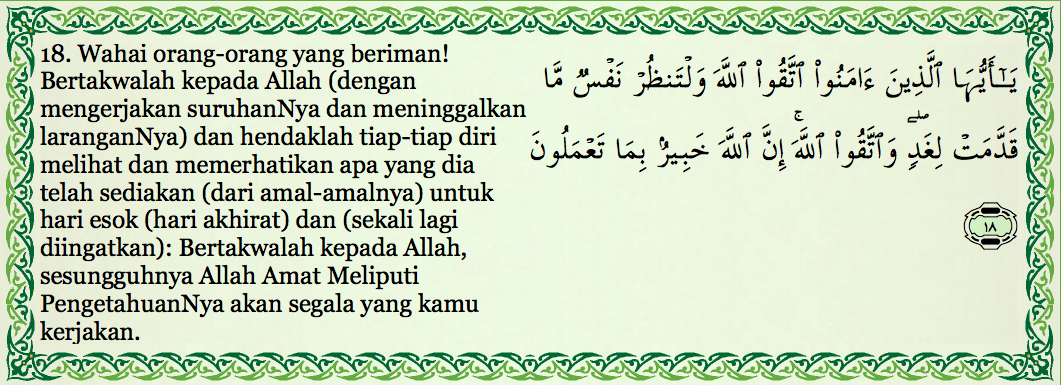 18. Wahai orang-orang yang beriman!
Bertakwalah kepada Allah (dengan
mengerjakan suruhanNya dan meninggalkan
laranganNya) dan hendaklah tiap-tiap diri
melihat dan memerhatikan apa yang dia
telah sediakan (dari amal-amalnya) untuk
hari esok (hari akhirat) dan (sekali lagi
diingatkan): Bertakwalah kepada Allah,
sesungguhnya Allah Amat Meliputi
PengetahuanNya akan segala yang kamu
kerjakan.
يَـٰٓأَيُّهَا ٱلَّذِينَ ءَامَنُوا۟ ٱتَّقُوا۟ ٱللَّهَ وَلْتَنظُرْ نَفْسٌ مَّا
قَدَّمَتْ لِغَدٍ ۖ وَٱتَّقُوا۟ ٱللَّهَ ۚ إِنَّ ٱللَّهَ خَبِيرٌۢ بِمَا تَعْمَلُونَ
١٨